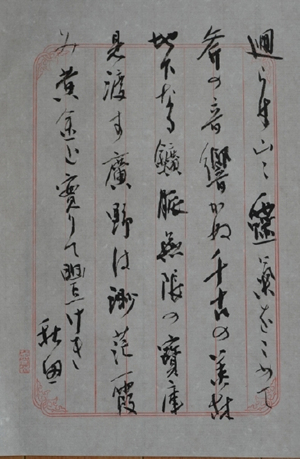 廻らす山々靈氣をこめて
斧の音響かぬ千古の美林
地下なる鑛脈無限の寶庫
見渡す廣野は渺茫霞
み黄金と實りて豊けき
秋田